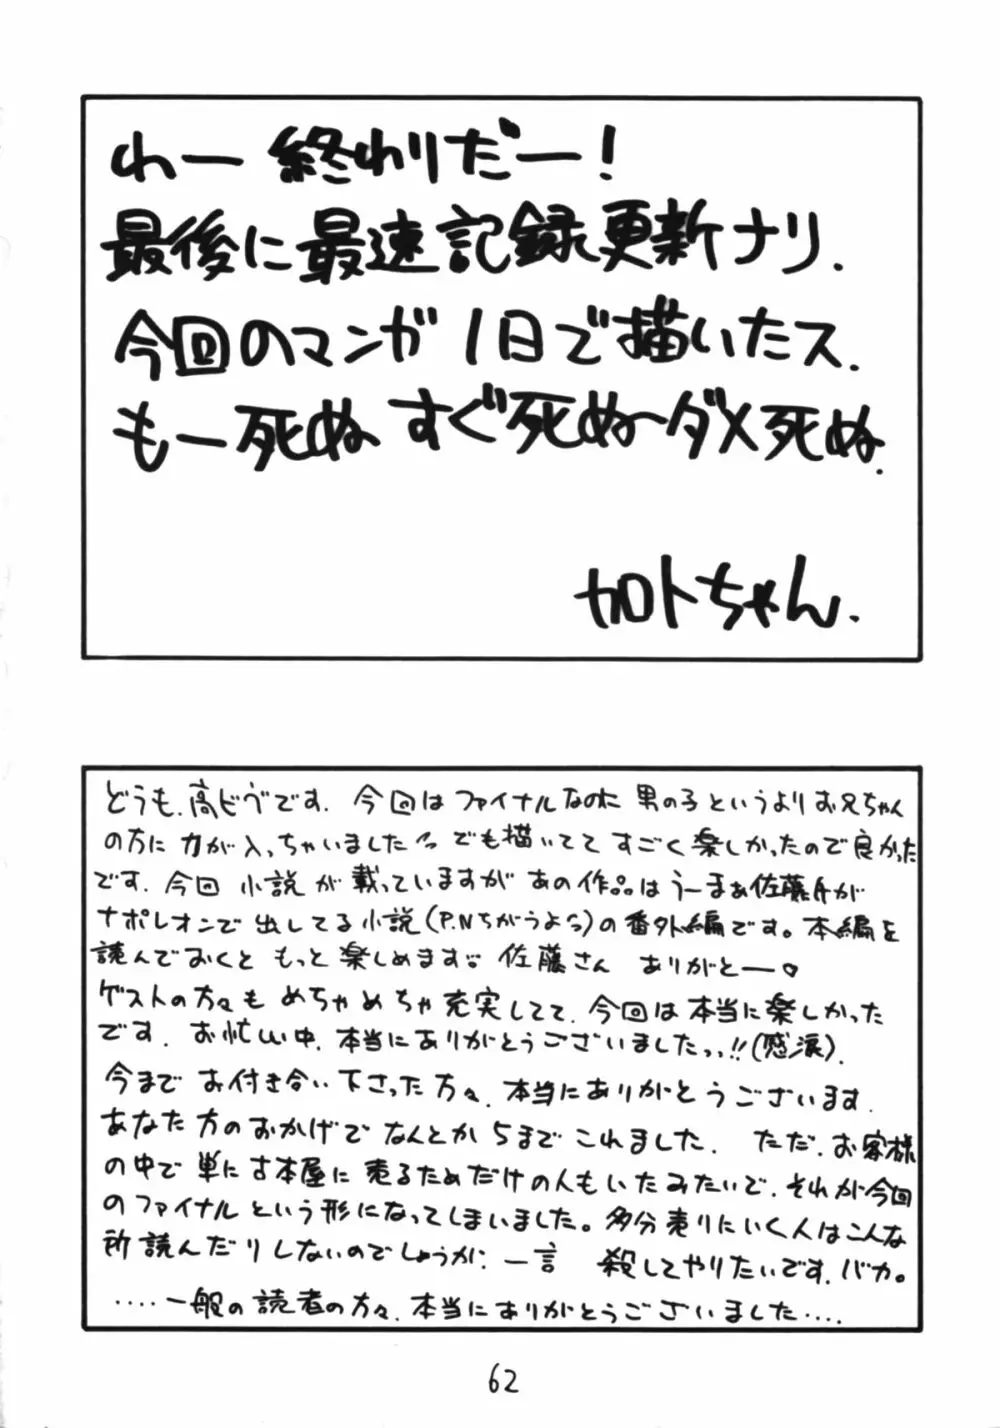 わー 終わりだー!
最後に最速記録更新ナリ.
今回のマンガ1日で描いたス.
もー死ぬ すぐ死ぬ〜ダメ死ぬ.
カロトちゃん.
どうも、高ビヴです. 今回はファイナルなのに 男の子というよりお兄ちゃん
の方に 力が入っちゃいました でも描いてて すごく楽しかったので良かった
です. 今回 小説 が載っていますが あの作品はうーまぁ佐藤さんが
ナポレオンで出してる小説(P.Nちがうよ)の番外編です。本編を
読んでおくと もっと楽しめます。佐藤さん ありがとー♡
ゲストの方々も めちゃめちゃ充実してて、今回は本当に楽しかった
です. お忙しい中、本当にありがとうございましたっ、!!(感涙).
今まで お付き合い下さった方々、本当にありがとうございます.
あなた方のおかげで なんとか 5まで これました. ただ、お客様
の中で 単に古本屋に売るためだけの人もいたみたいで、それが今回
のファイナルという形になってしまいました。多分売りにいく人はこんな
所読んだりしないのでしょうが、一言 殺してやりたいです、バカ。
....一般の読者の方々、本当にありがとうございました....
62